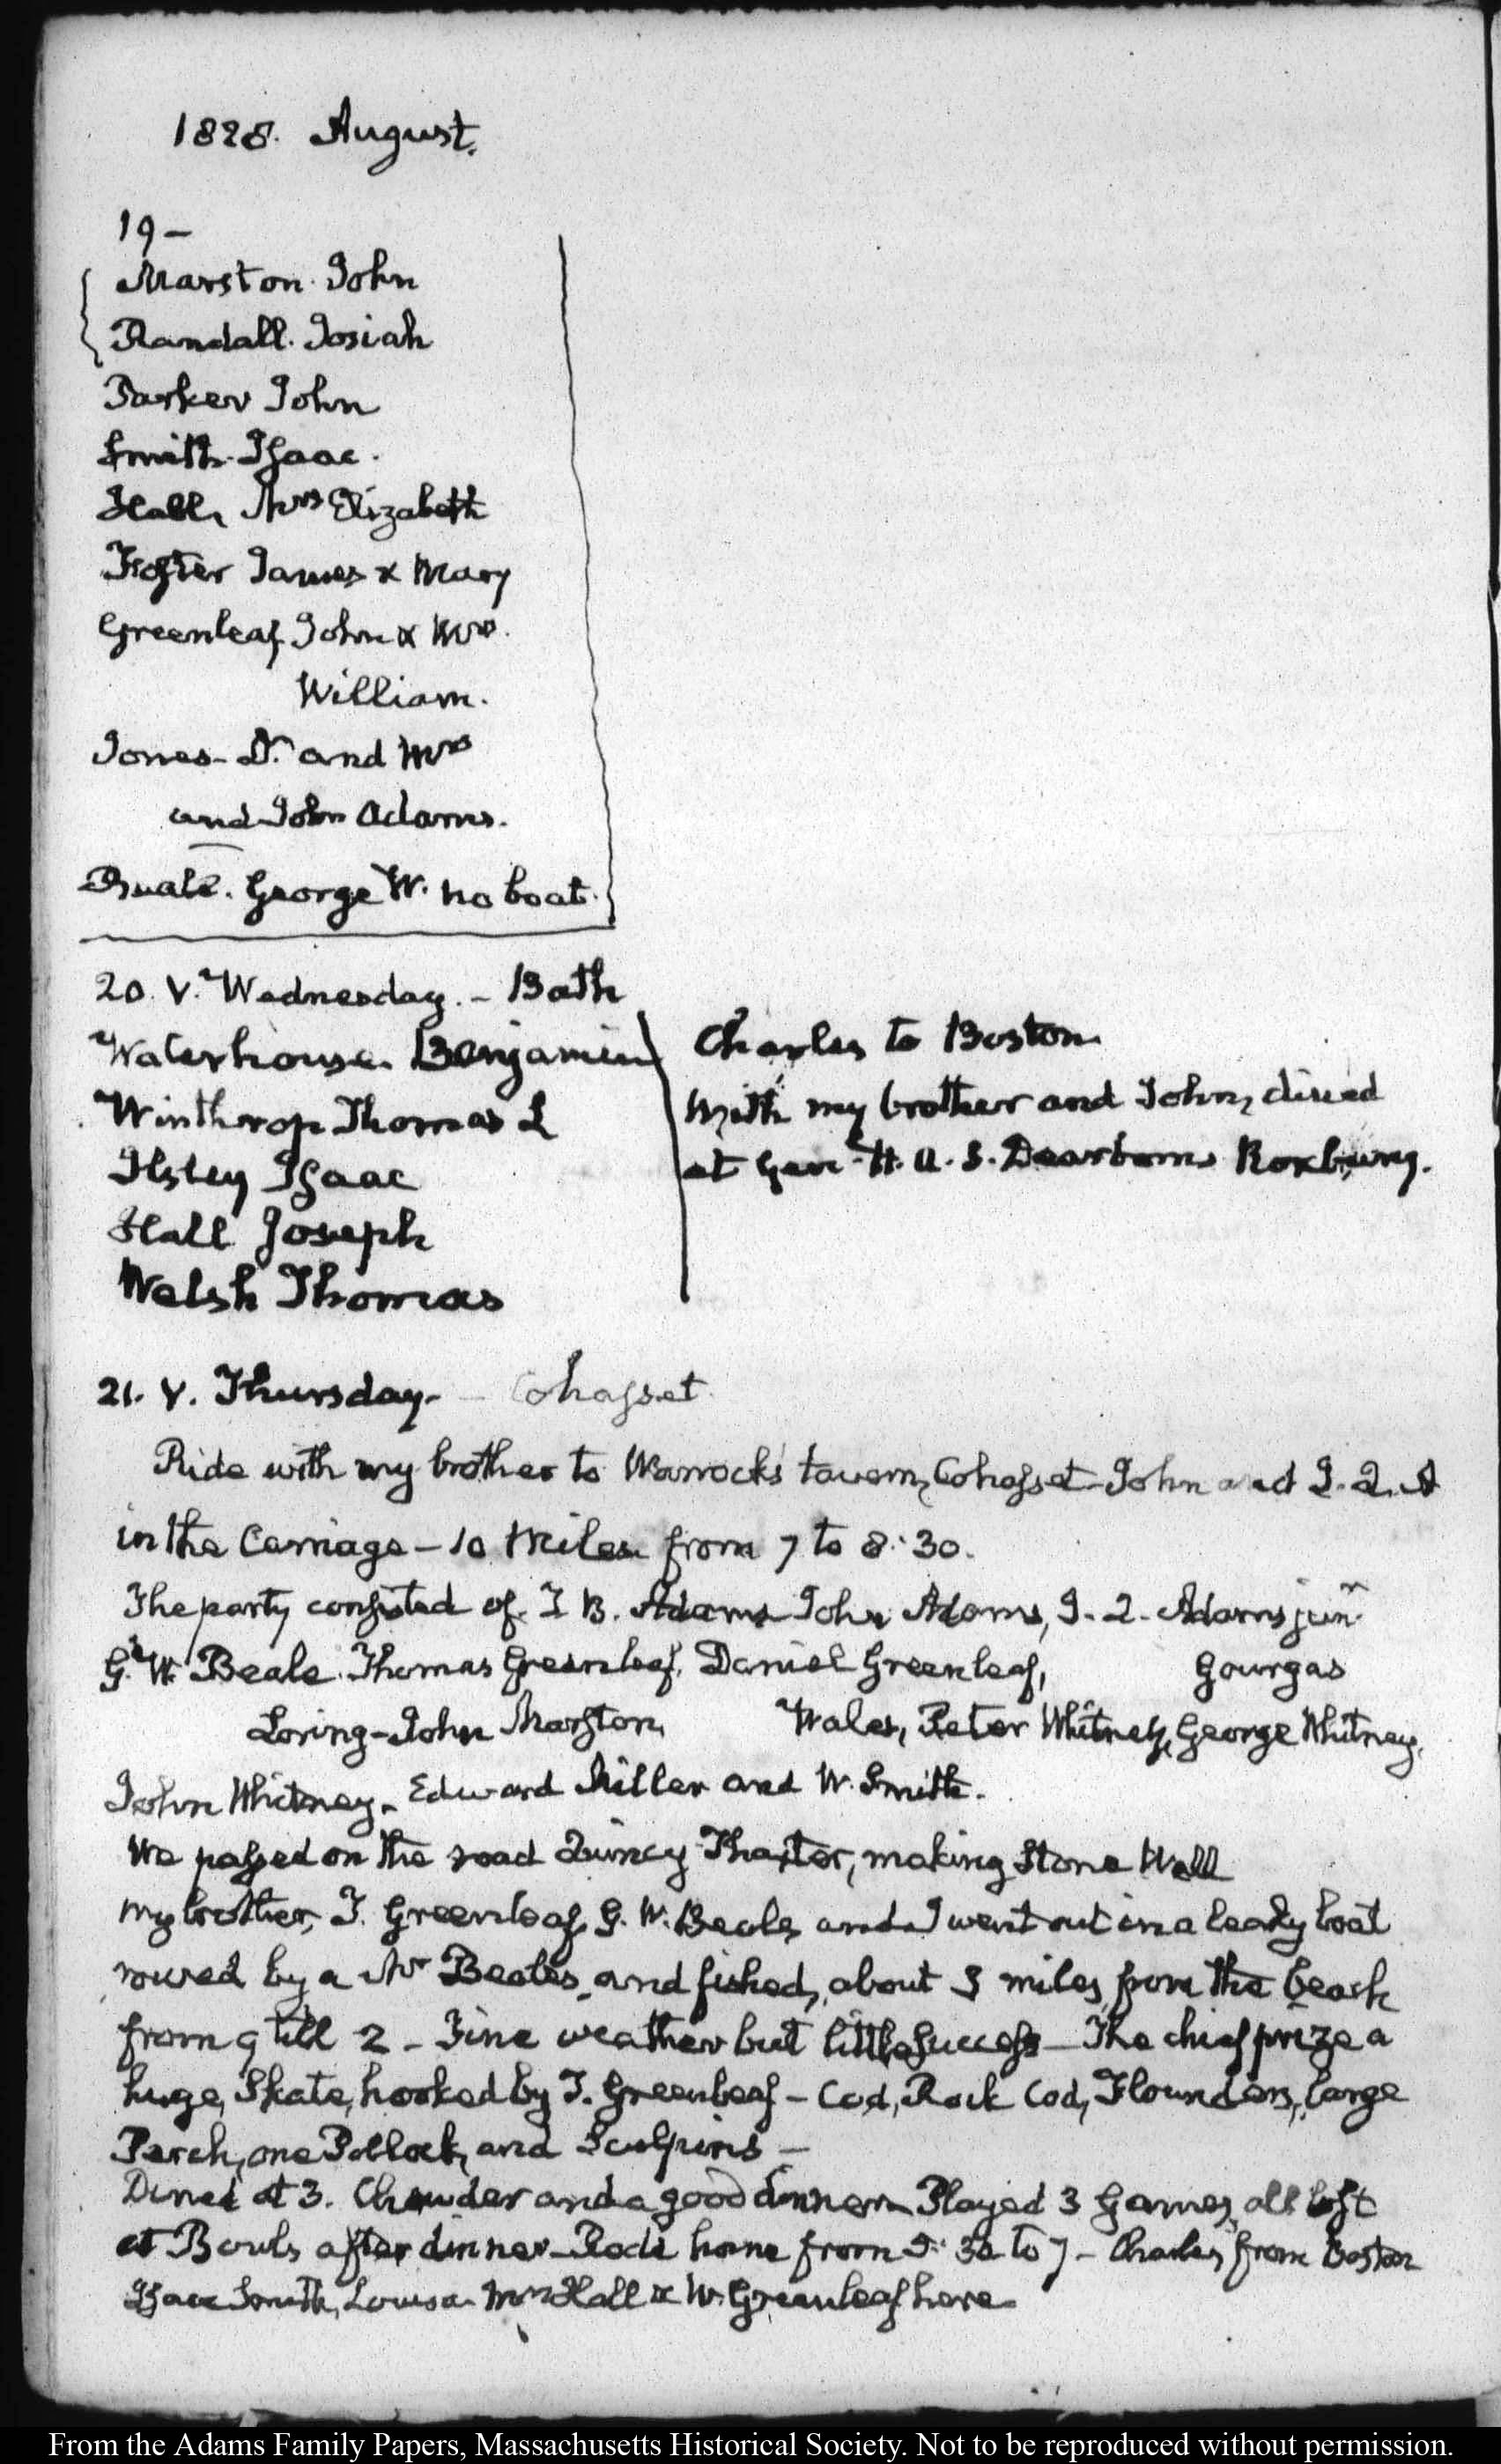 1828. August.
19 –
Marston. John
Randall. Josiah
Parker John
Smith. Isaac.
Hall, Mrs Elizabeth
Foster James & Mary
Greenleaf John & Mrs.
William.
Jones – Dr. and Mrs
and John Adams.
Beale. George W. no boat.
20. V. Wednesday. – Bath
Waterhouse. Benjamin
Winthrop Thomas L
Ilsley Isaac
Hall Joseph
Welsh Thomas
Charles to Boston
With my brother and John, dined
at Genl. H. A. S. Dearborns Roxbury.
21. V. Thursday – Cohasset.
Ride with my brother to Warrocks tavern, Cohasset – John and J. Q. A
in the Carriage – 10 Miles from 7 to 8:30.
The party consisted of T B. Adams John Adams, J. Q. Adams junr
G. W. Beale. Thomas Greenleaf, Daniel Greenleaf, Gourgas
Loring – John Marston, Wales, Peter Whitney, George Whitney,
John Whitney, Edward Miller and W. Smith.
We passed on the road Quincy Thaxter, making Stone Wall
My brother, T. Greenleaf, G. W. Beale, and I went out in a leaky boat
rowed by a Mr Beales, and fished, about 3 miles from the beach
from 9 till 2 – Fine weather but little success – The chief prize a
huge, Skate, hooked by T. Greenleaf – Cod, Rock Cod, Flounders, large
Perch, one Pollock, and Sculpins –
Dined at 3. Chowder and a good dinner – Played 3 Games, all lost
at Bowls after dinner – Rode home from 5:30 to 7 – Charles from Boston
Isaac Smith, Louisa Mrs Hall & W. Greenleaf here
From the Adams Family Papers, Massachusetts Historical Society. Not to be reproduced without permission.